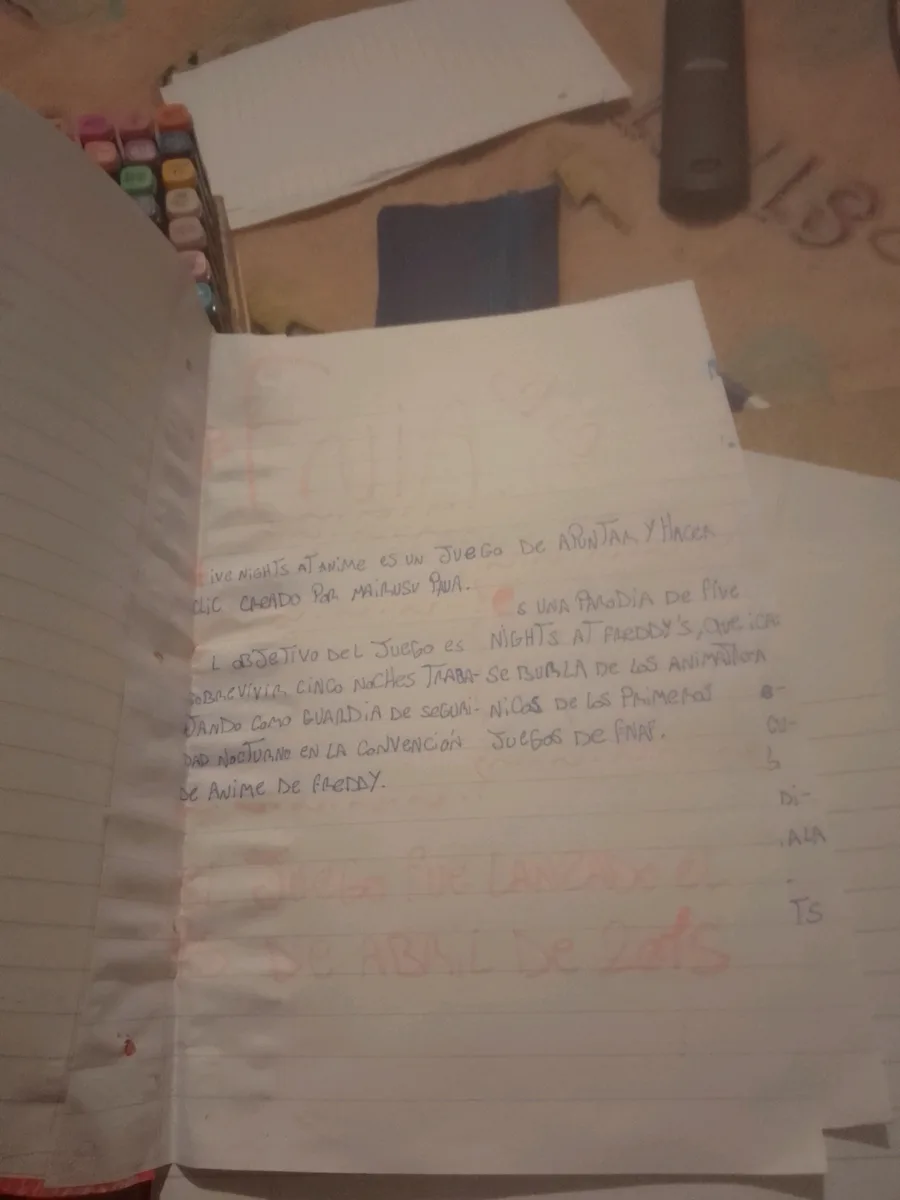 ive NiGHTS AT ANiMe es UN JUEGO De APUNTAR Y HACER
CLiC CREADO POR MAiRUSU PAUA.
L OBJETiVO DEL JUEGO es
SOBREViViR CiNCO NOCHES TRABA-
JANDO COMO GUARDiA De SEGURi-
DAD NOCTURNO EN LA CONVENCiÓN
De ANiMe De FREDDY.
s UNA PARODiA De Five
NiGHTS AT FREDDY'S, QUE
Se BURLA De LOS ANiMATRÓ
NiCOS De LOS PRiMEROS
JUEGOS De FNAF.
JUEGO FUE LANZADO EL
De ABRiL De 2015
Di-
ALA
TS